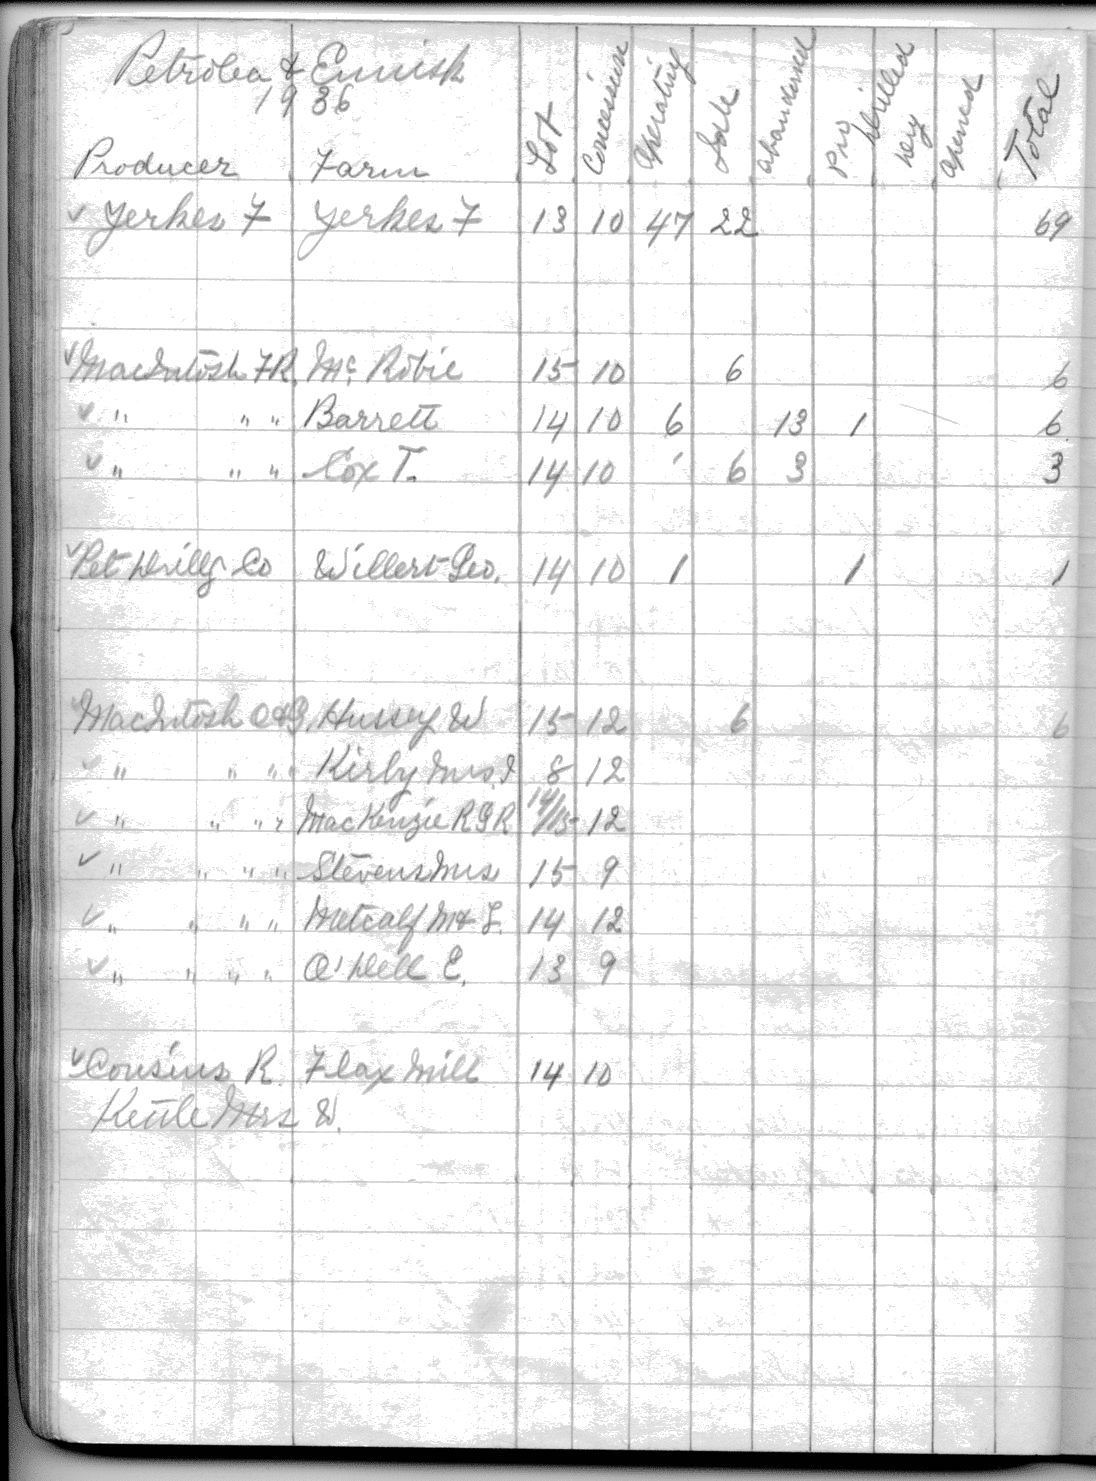 Petrolea & Ennisk
1936
Producer Farm Lot Concession Operating Idle abandoned Pro Drilled Dry opened Total
✓ Yerkes F Yerkes F 13 10 47 22 69
✓ MacIntosh F R. Mc Robie 15 10 6 6
✓ " " " Barrett 14 10 6 13 1 6
✓ " " " Cox T. 14 10 ' 6 3 3
✓ Pet Drillg Co Willert Geo. 14 10 1 1 1
MacIntosh O&G Hussey W 15 12 6 6
✓ " " " " Kirby Mrs. I 8 12
✓ " " " " MacKenzie R G R 14/15 12
✓ " " " " Stevens Mrs 15 9
✓ " " " " Metcalf M & L. 14 12
✓ " " " " O'Dell E. 13 9
✓ Cousins R. Flax Mill 14 10
Kettle Mrs W.